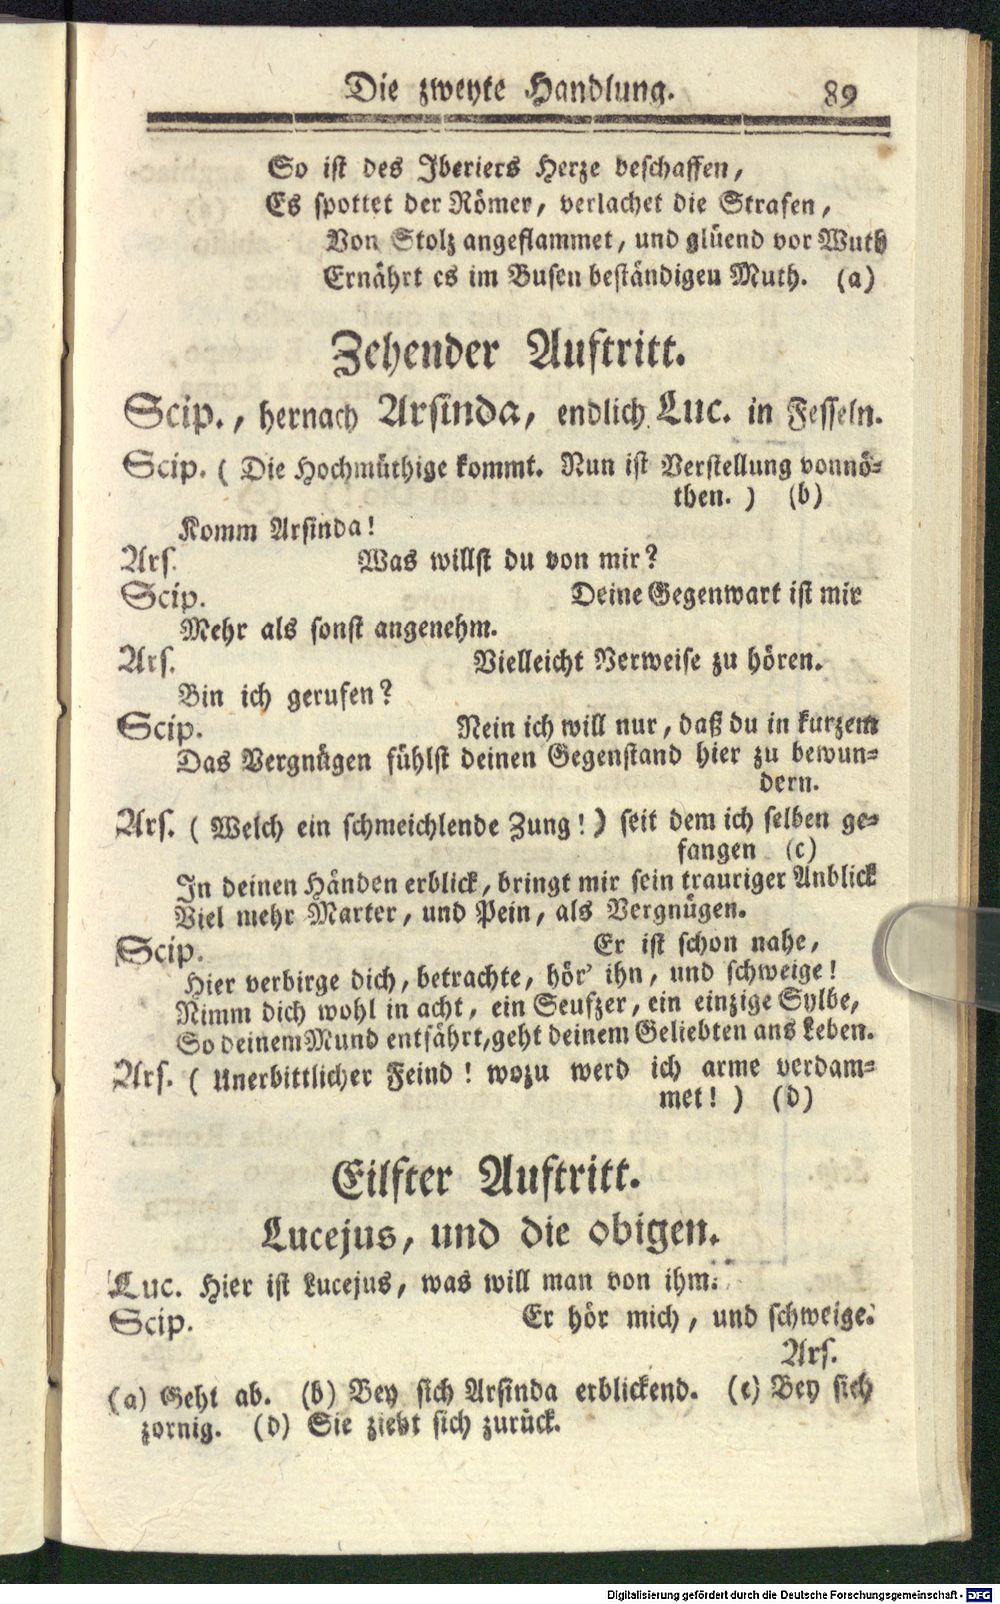 Die zweyte Handlung. 89
So ist des Iberiers Herze beschaffen,
Es spottet der Römer, verlachet die Strafen,
Von Stolz angeflammet, und glüend vor Wuth
Ernährt es im Busen beständigen Muth. (a)
Zehender Auftritt.
Scip., hernach Arsinda, endlich Luc. in Fesseln.
Scip. ( Die Hochmüthige kommt. Nun ist Verstellung vonnö-
then. ) (b)
Komm Arsinda!
Ars. Was willst du von mir?
Scip. Deine Gegenwart ist mir
Mehr als sonst angenehm.
Ars. Vielleicht Verweise zu hören.
Bin ich gerufen?
Scip. Nein ich will nur, daß du in kurzem
Das Vergnügen fühlst deinen Gegenstand hier zu bewun-
dern.
Ars. ( Welch ein schmeichlende Zung! ) seit dem ich selben ge-
fangen (c)
In deinen Händen erblick, bringt mir sein trauriger Anblick
Viel mehr Marter, und Pein, als Vergnügen.
Scip. Er ist schon nahe,
Hier verbirge dich, betrachte, hör' ihn, und schweige!
Nimm dich wohl in acht, ein Seufzer, ein einzige Sylbe,
So deinem Mund entfährt, geht deinem Geliebten ans Leben.
Ars. ( Unerbittlicher Feind! wozu werd ich arme verdam-
met! ) (d)
Eilfter Auftritt.
Lucejus, und die obigen.
Luc. Hier ist Lucejus, was will man von ihm.
Scip. Er hör mich, und schweige.
Ars.
(a) Geht ab. (b) Bey sich Arsinda erblickend. (c) Bey sich
zornig. (d) Sie zieht sich zurück.
Digitalisierung gefördert durch die Deutsche Forschungsgemeinschaft - DFG